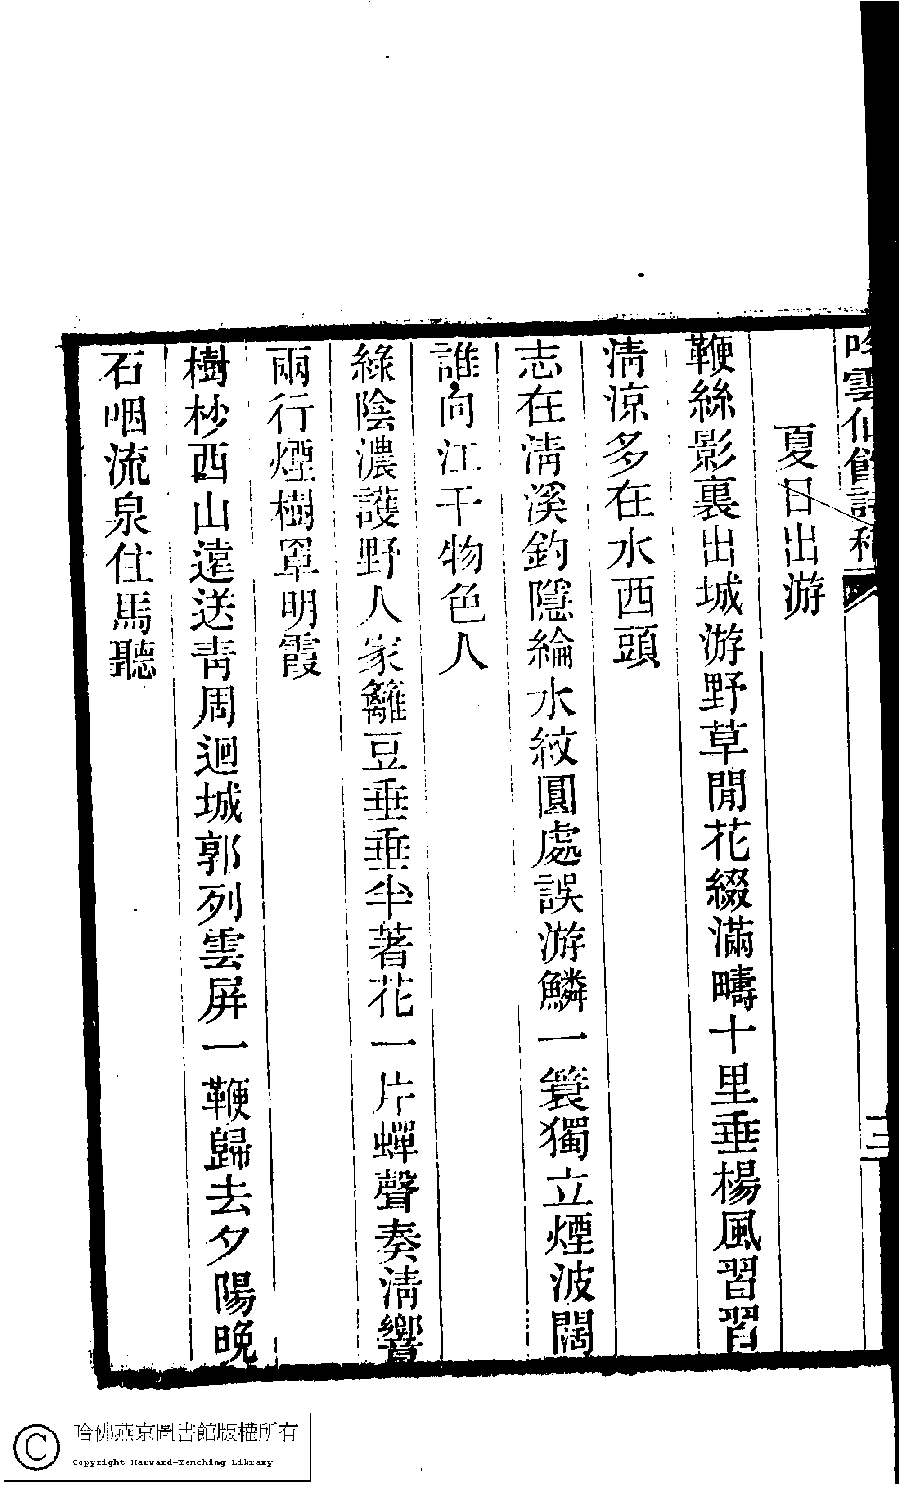 吟雲仙館詩稿
三
夏日出游
鞭絲影裏出城游野草閒花綴滿疇十里垂楊風習習
清涼多在水西頭
志在清溪釣隱綸水紋圓處誤游鱗一簑獨立煙波闊
誰向江干物色人
綠陰濃護野人家籬豆垂垂半著花一片蟬聲奏清響
兩行煙樹罩明霞
樹杪西山遠送青周迴城郭列雲屏一鞭歸去夕陽晚
石咽流泉住馬聽
哈佛燕京圖書館版權所有
Copyright Harvard-Yenching Library